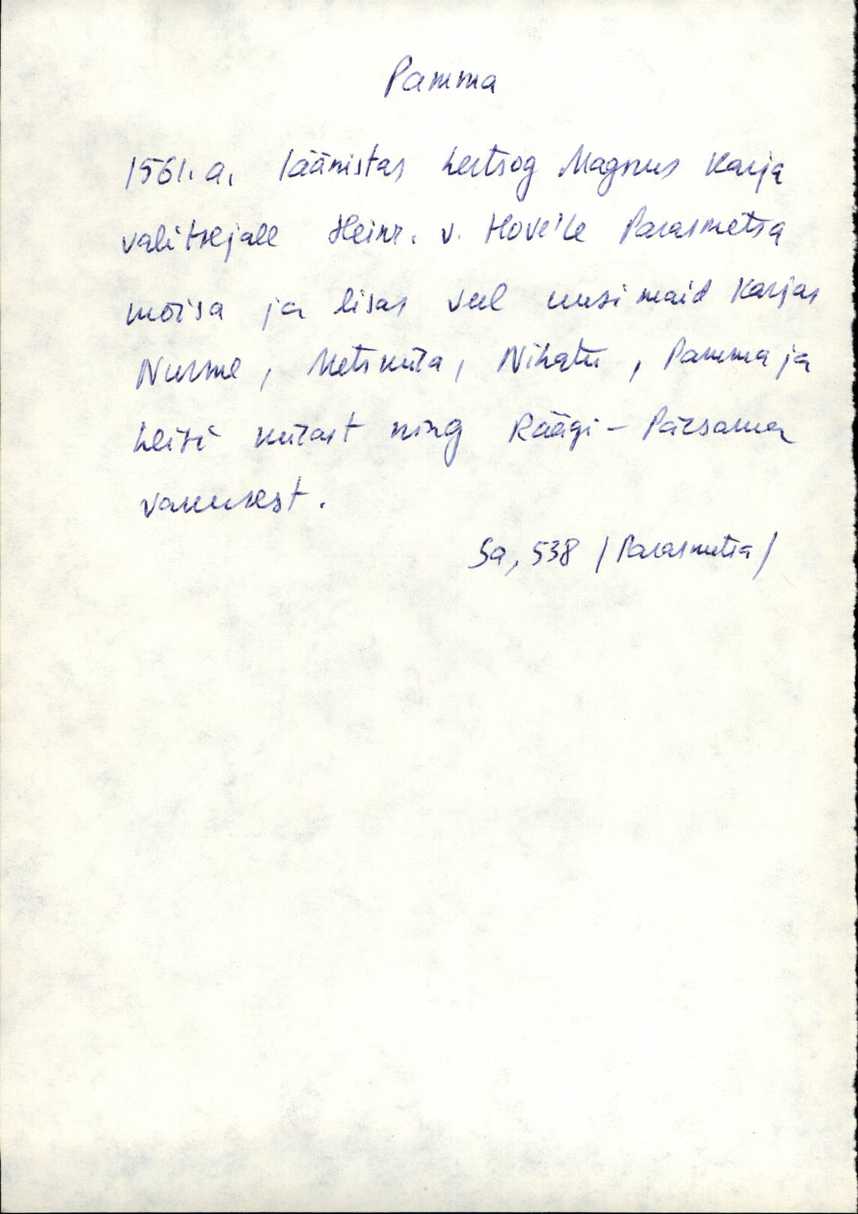 Pamma
1561. a. läänistas hertsog Magnus Karja
valitsejale Heinr. v. Hove'le Parasmetsa
mõisa ja lisas veel uusi maid Karjas
Nurme, Metsküla, Nihatu, Pamma ja
Leisi külast ning Räägi - Pärsama
vakusest.
Sa, 538 / Parasmetsa /